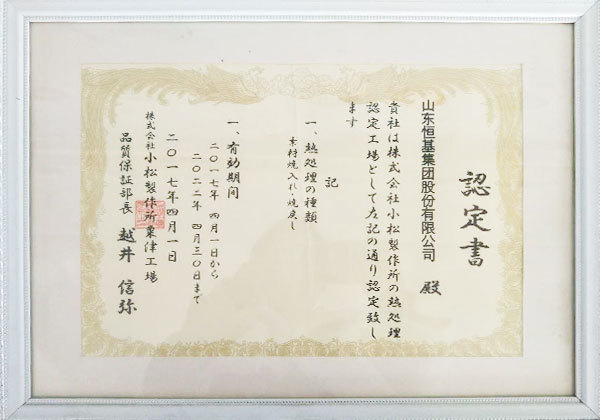 認定書
山东恒基集团股份有限公司 殿
貴社は株式会社小松製作所の熱処理
認定工場として左記の通り認定致し
ます
記
一、熱処理の種類
素材焼入れ焼戻し
一、有効期间
二〇一七年 四月一日から
二〇二二年 四月三〇日まで
二〇一七年四月一日
株式会社小松製作所粟津工場
品質保証部長 越井 信弥